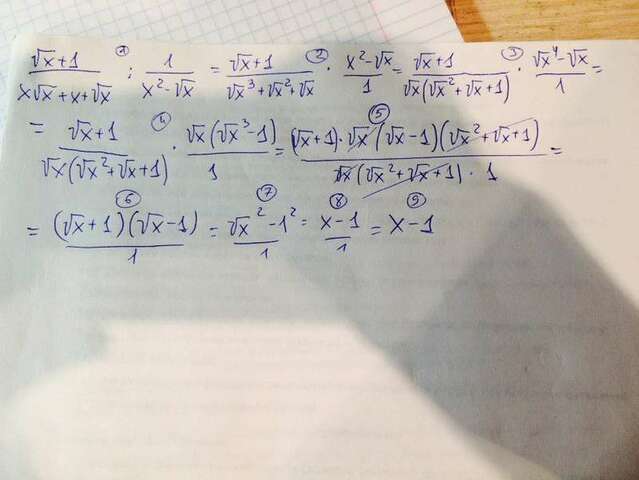 (√x+1)/(x√x+x+√x) ① : 1/(x²-√x) = (√x+1)/(√x³+√x²+√x) ② · (x²-√x)/1 = (√x+1)/(√x(√x²+√x+1)) ③ · (√x⁴-√x)/1 =
= (√x+1)/(√x(√x²+√x+1)) ④ · (√x(√x³-1))/1 = ⑤ ((√x+1)·√x(√x-1)(√x²+√x+1))/(√x(√x²+√x+1)·1) =
= ⑥ ((√x+1)(√x-1))/1 = ⑦ (√x²-1²)/1 = ⑧ (x-1)/1 = ⑨ x-1